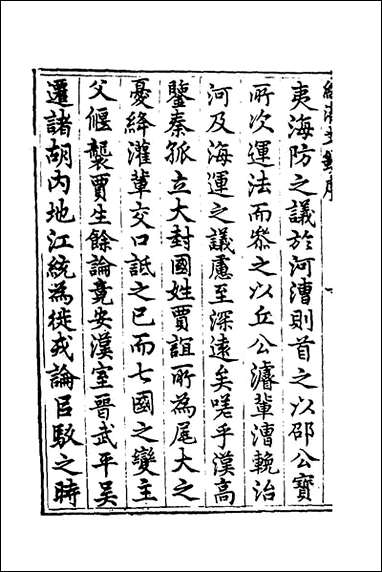 夷海防之議於河漕則首之以邵公寶
所次運法而叅之以丘公濬軰漕輓治
河及海運之議慮至深遠矣嗟乎漢高
鑒秦孤立大封國姓賈誼所為尾大之
憂絳灌軰交口詆之已而七國之變主
父偃襲賈生餘論竟安漢室晉武平吴
遷諸胡内地江統為徙戎論呂馭之時